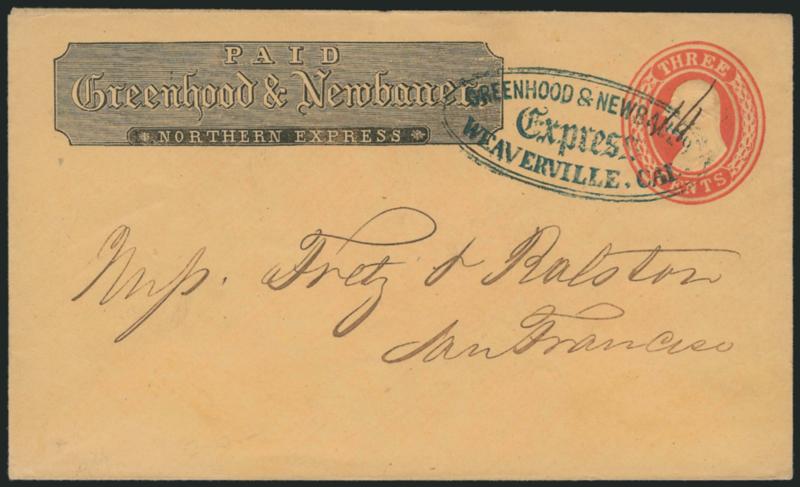 PAID
Greenhood & Newbauer
NORTHERN EXPRESS
GREENHOOD & NEWBAUER
Express
WEAVERVILLE, CAL
THREE
CENTS
Messrs. Fretz & Ralston
San Francisco